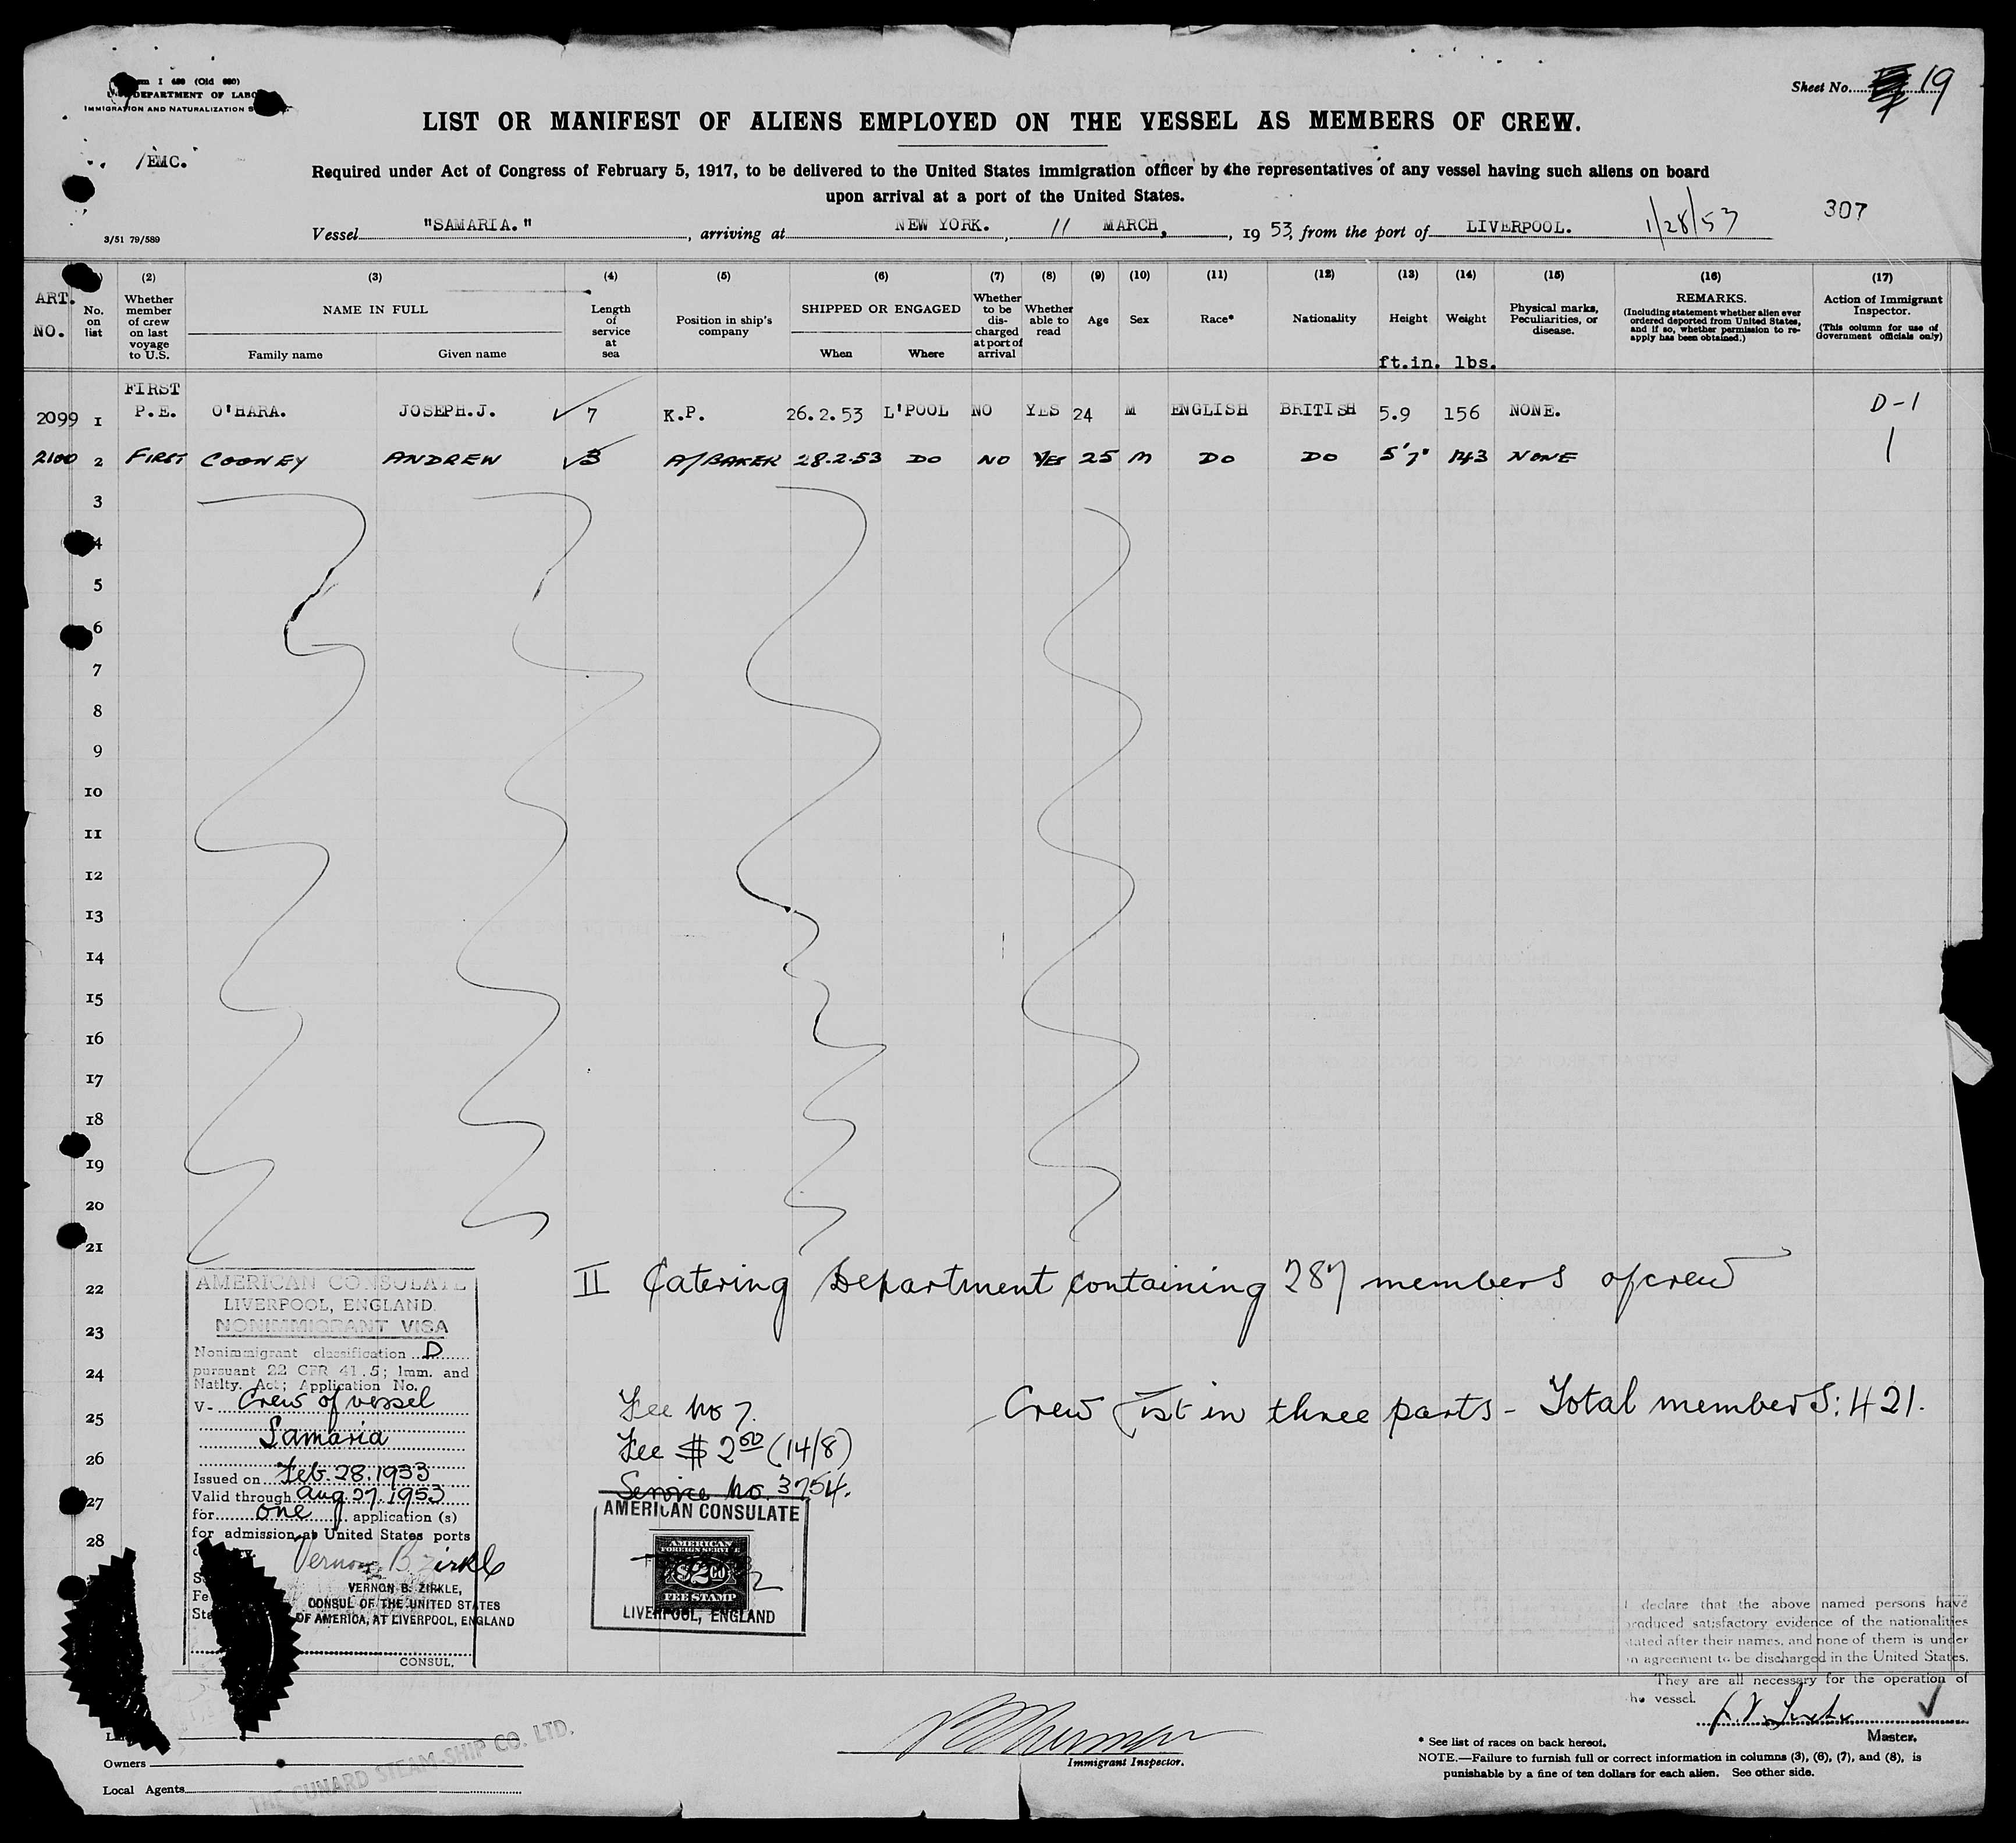 Sheet No. 19
Form I 480 (Old 680)
DEPARTMENT OF LABOR
IMMIGRATION AND NATURALIZATION
LIST OR MANIFEST OF ALIENS EMPLOYED ON THE VESSEL AS MEMBERS OF CREW.
/EMC.
Required under Act of Congress of February 5, 1917, to be delivered to the United States immigration officer by the representatives of any vessel having such aliens on board
upon arrival at a port of the United States.
307
3/51 79/589
Vessel "SAMARIA." , arriving at NEW YORK. , 11 MARCH, , 19 53, from the port of LIVERPOOL. 1/28/53
(2) (3) (4) (5) (6) (7) (8) (9) (10) (11) (12) (13) (14) (15) (16) (17)
ART. NO.
No. on list
Whether member of crew on last voyage to U.S.
NAME IN FULL
Family name Given name
Length of service at sea
Position in ship's company
SHIPPED OR ENGAGED
When Where
Whether to be discharged at port of arrival
Whether able to read
Age
Sex
Race*
Nationality
Height
ft.in.
Weight
lbs.
Physical marks, Peculiarities, or disease.
REMARKS.
(Including statement whether alien ever ordered deported from United States, and if so, whether permission to re-apply has been obtained.)
Action of Immigrant Inspector.
(This column for use of Government officials only)
FIRST
2099 1 P.E. O'HARA. JOSEPH.J. ✓ 7 K.P. 26.2.53 L'POOL NO YES 24 M ENGLISH BRITISH 5.9 156 NONE. D-1
2100 2 FIRST COONEY ANDREW ✓ 3 A/BAKER 28.2.53 DO NO YES 25 M DO DO 5'7" 143 NONE 1
3
4
5
6
7
8
9
10
11
12
13
14
15
16
17
18
19
20
21
22
23
24
25
26
27
28
II Catering Department containing 287 members of crew
Crew List in three parts - Total members: 421.
AMERICAN CONSULATE
LIVERPOOL, ENGLAND.
NONIMMIGRANT VISA
Nonimmigrant classification D
pursuant 22 CFR 41.5; Imm. and
Natlty. Act; Application No.
V- Crew of vessel
Samaria
Issued on Feb. 28. 1953
Valid through Aug 27. 1953
for one application (s)
for admission at United States ports
Vernon B Zirkle
VERNON B. ZIRKLE,
CONSUL OF THE UNITED STATES
OF AMERICA, AT LIVERPOOL, ENGLAND
CONSUL.
Fee No 7.
Fee $ 2.00 (14/8)
Service No. 3754.
AMERICAN CONSULATE
AMERICAN
FOREIGN SERVICE
$2.00
FEE STAMP
LIVERPOOL, ENGLAND
I declare that the above named persons have
produced satisfactory evidence of the nationalities
stated after their names, and none of them is under
an agreement to be discharged in the United States.
They are all necessary for the operation of
the vessel.
✓
Master.
Immigrant Inspector.
Owners
Local Agents
THE CUNARD STEAM-SHIP CO. LTD.
* See list of races on back hereof.
NOTE.—Failure to furnish full or correct information in columns (3), (6), (7), and (8), is
punishable by a fine of ten dollars for each alien. See other side.